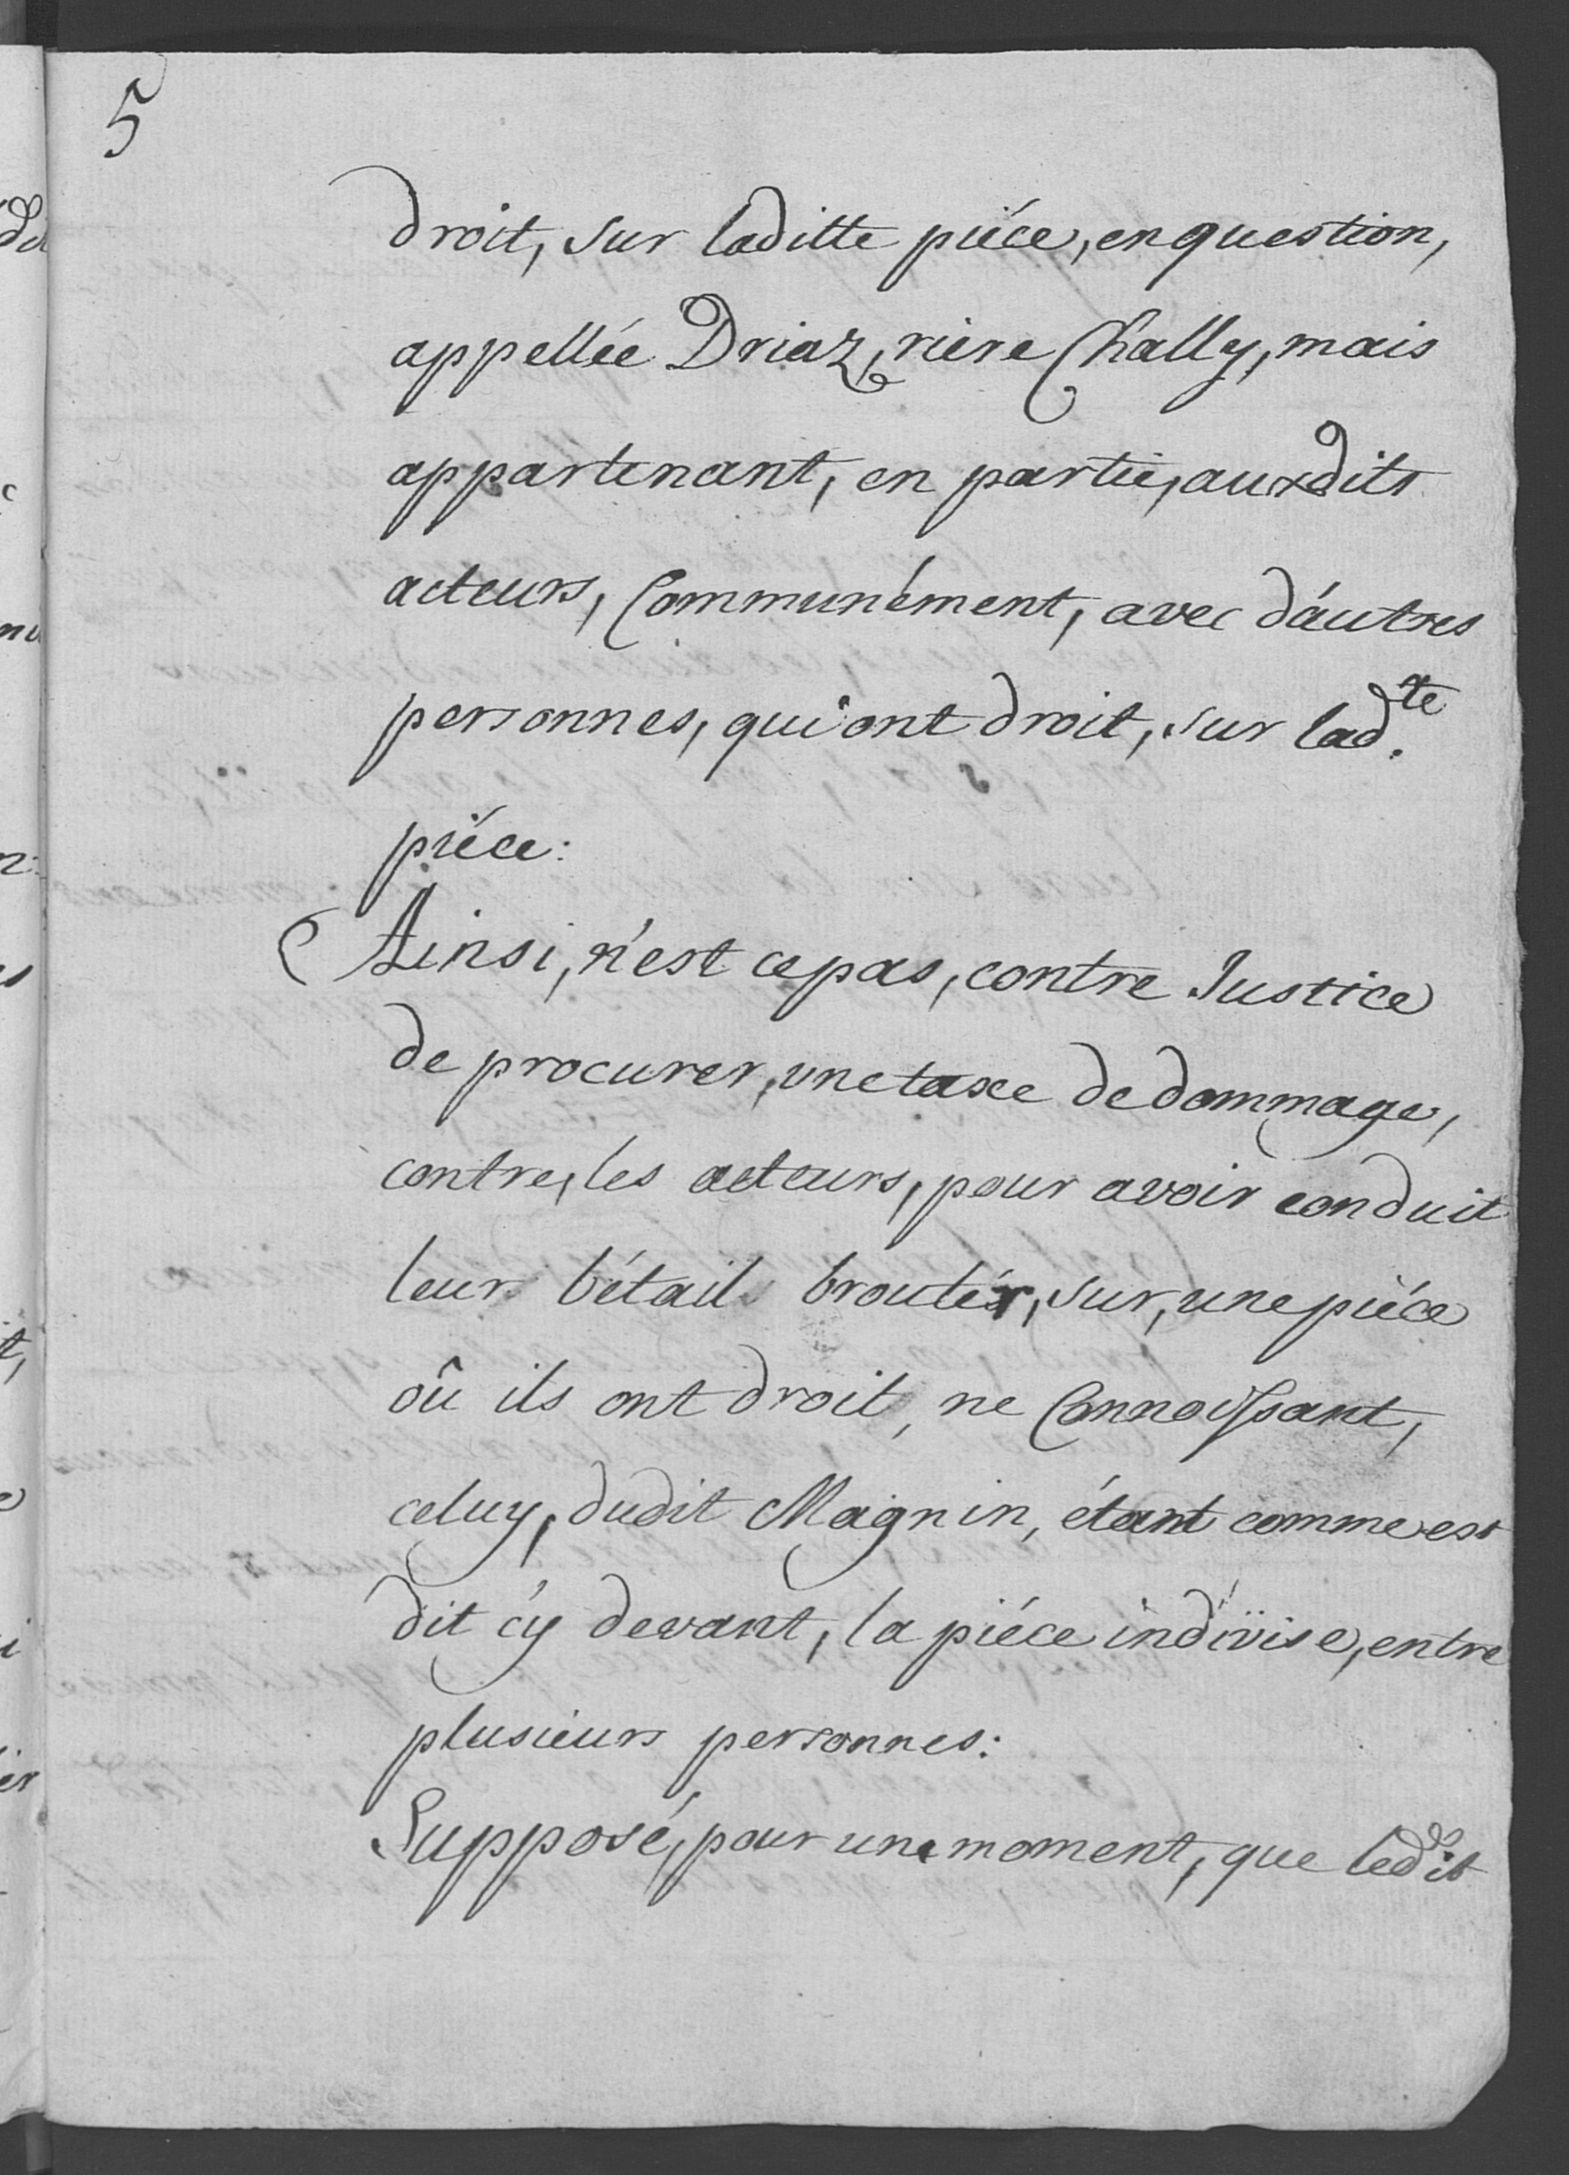 5
droit, sur laditte piéce, en question,
appellée Driaz, riére Chally, mais
appartenant, en partie, auxdits
acteurs, Communément, avec d'autres
personnes, qui ont droit, sur lad.te
piéce:
Ainsi, n'est ce pas, contre Justice
de procurer, une taxe de dommage,
contre, les acteurs, pour avoir conduit
leur bétail broutér, sur, une piéce
oû ils ont droit, ne Connoissant,
celuy, dudit Magnin, étant comme est
dit c'y devant, la piéce indivise, entre
plusieurs personnes:
Supposé, pour une moment, que ledit